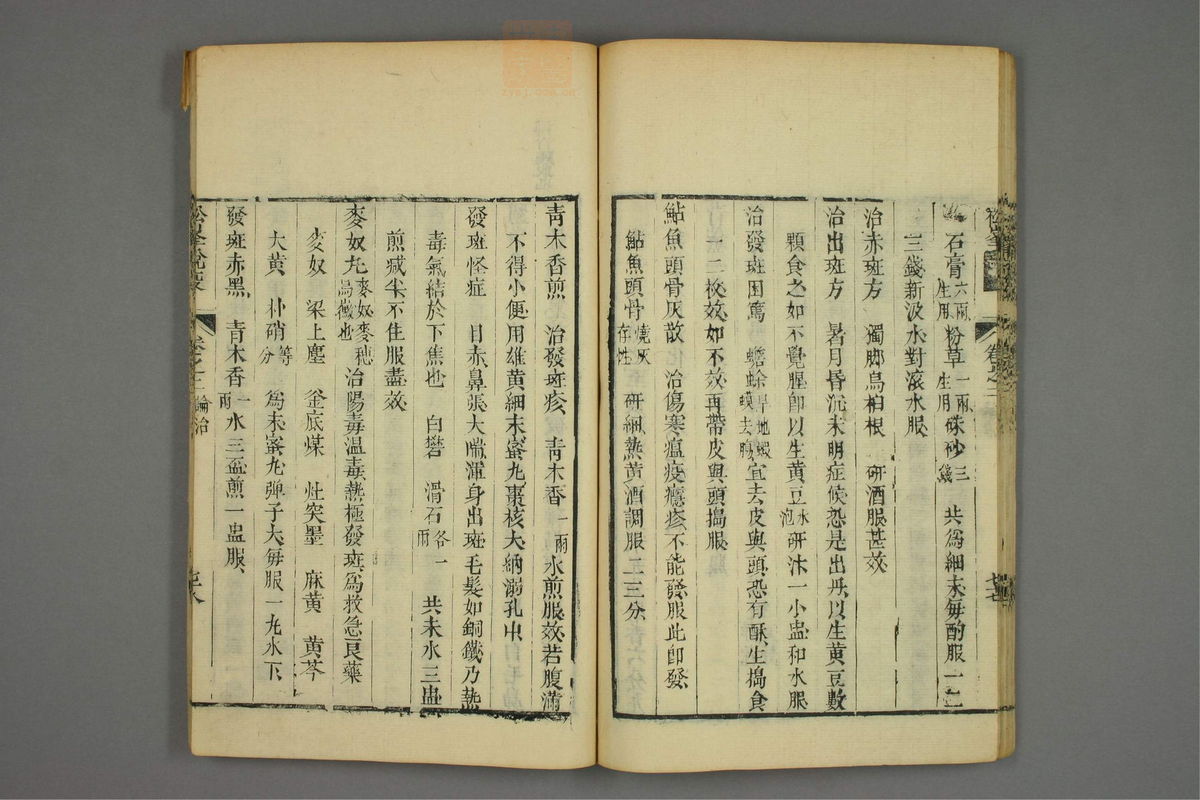 石膏六兩生用 粉草一兩生用 硃砂三錢 共爲細末每酌服一二
三錢新汲水對滚水服
治赤斑方 獨脚烏桕根 研酒服甚效
治出斑方 暑月昏沉未明症候恐是出丹以生黄豆數
顆食之如不覺腥卽以生黄豆水泡研沬一小盅和水服
治發斑困篤 蟾蜍 宜去皮與頭恐有酥生搗食
一二枚效如不效再帶皮與頭搗服
鮎魚頭骨灰散 治傷寒瘟疫癮疹不能發服此卽發
鮎魚頭骨燒灰存性 研細熱黄酒調服二三分
青木香煎 治發斑疹 青木香一兩水煎服效若腹滿
不得小便用雄黄細末蜜丸棗核大納溺孔中
發斑怪症 目赤鼻張大喘渾身出斑毛髮如銅鐵乃熱
毒氣結於下焦也 白礬 滑石各一兩 共末水三盅
煎减半不住服盡效
麥奴丸麥奴麥穗烏黴也 治陽毒温毒熱極發斑爲救急良藥
麥奴 梁上塵 釜底煤 灶突墨 麻黄 黄芩
大黄 朴硝等分 爲末蜜丸彈子大每服一丸水下
發斑赤黑 青木香一兩水三盃煎一盅服
松峯說疫 卷之三 論治